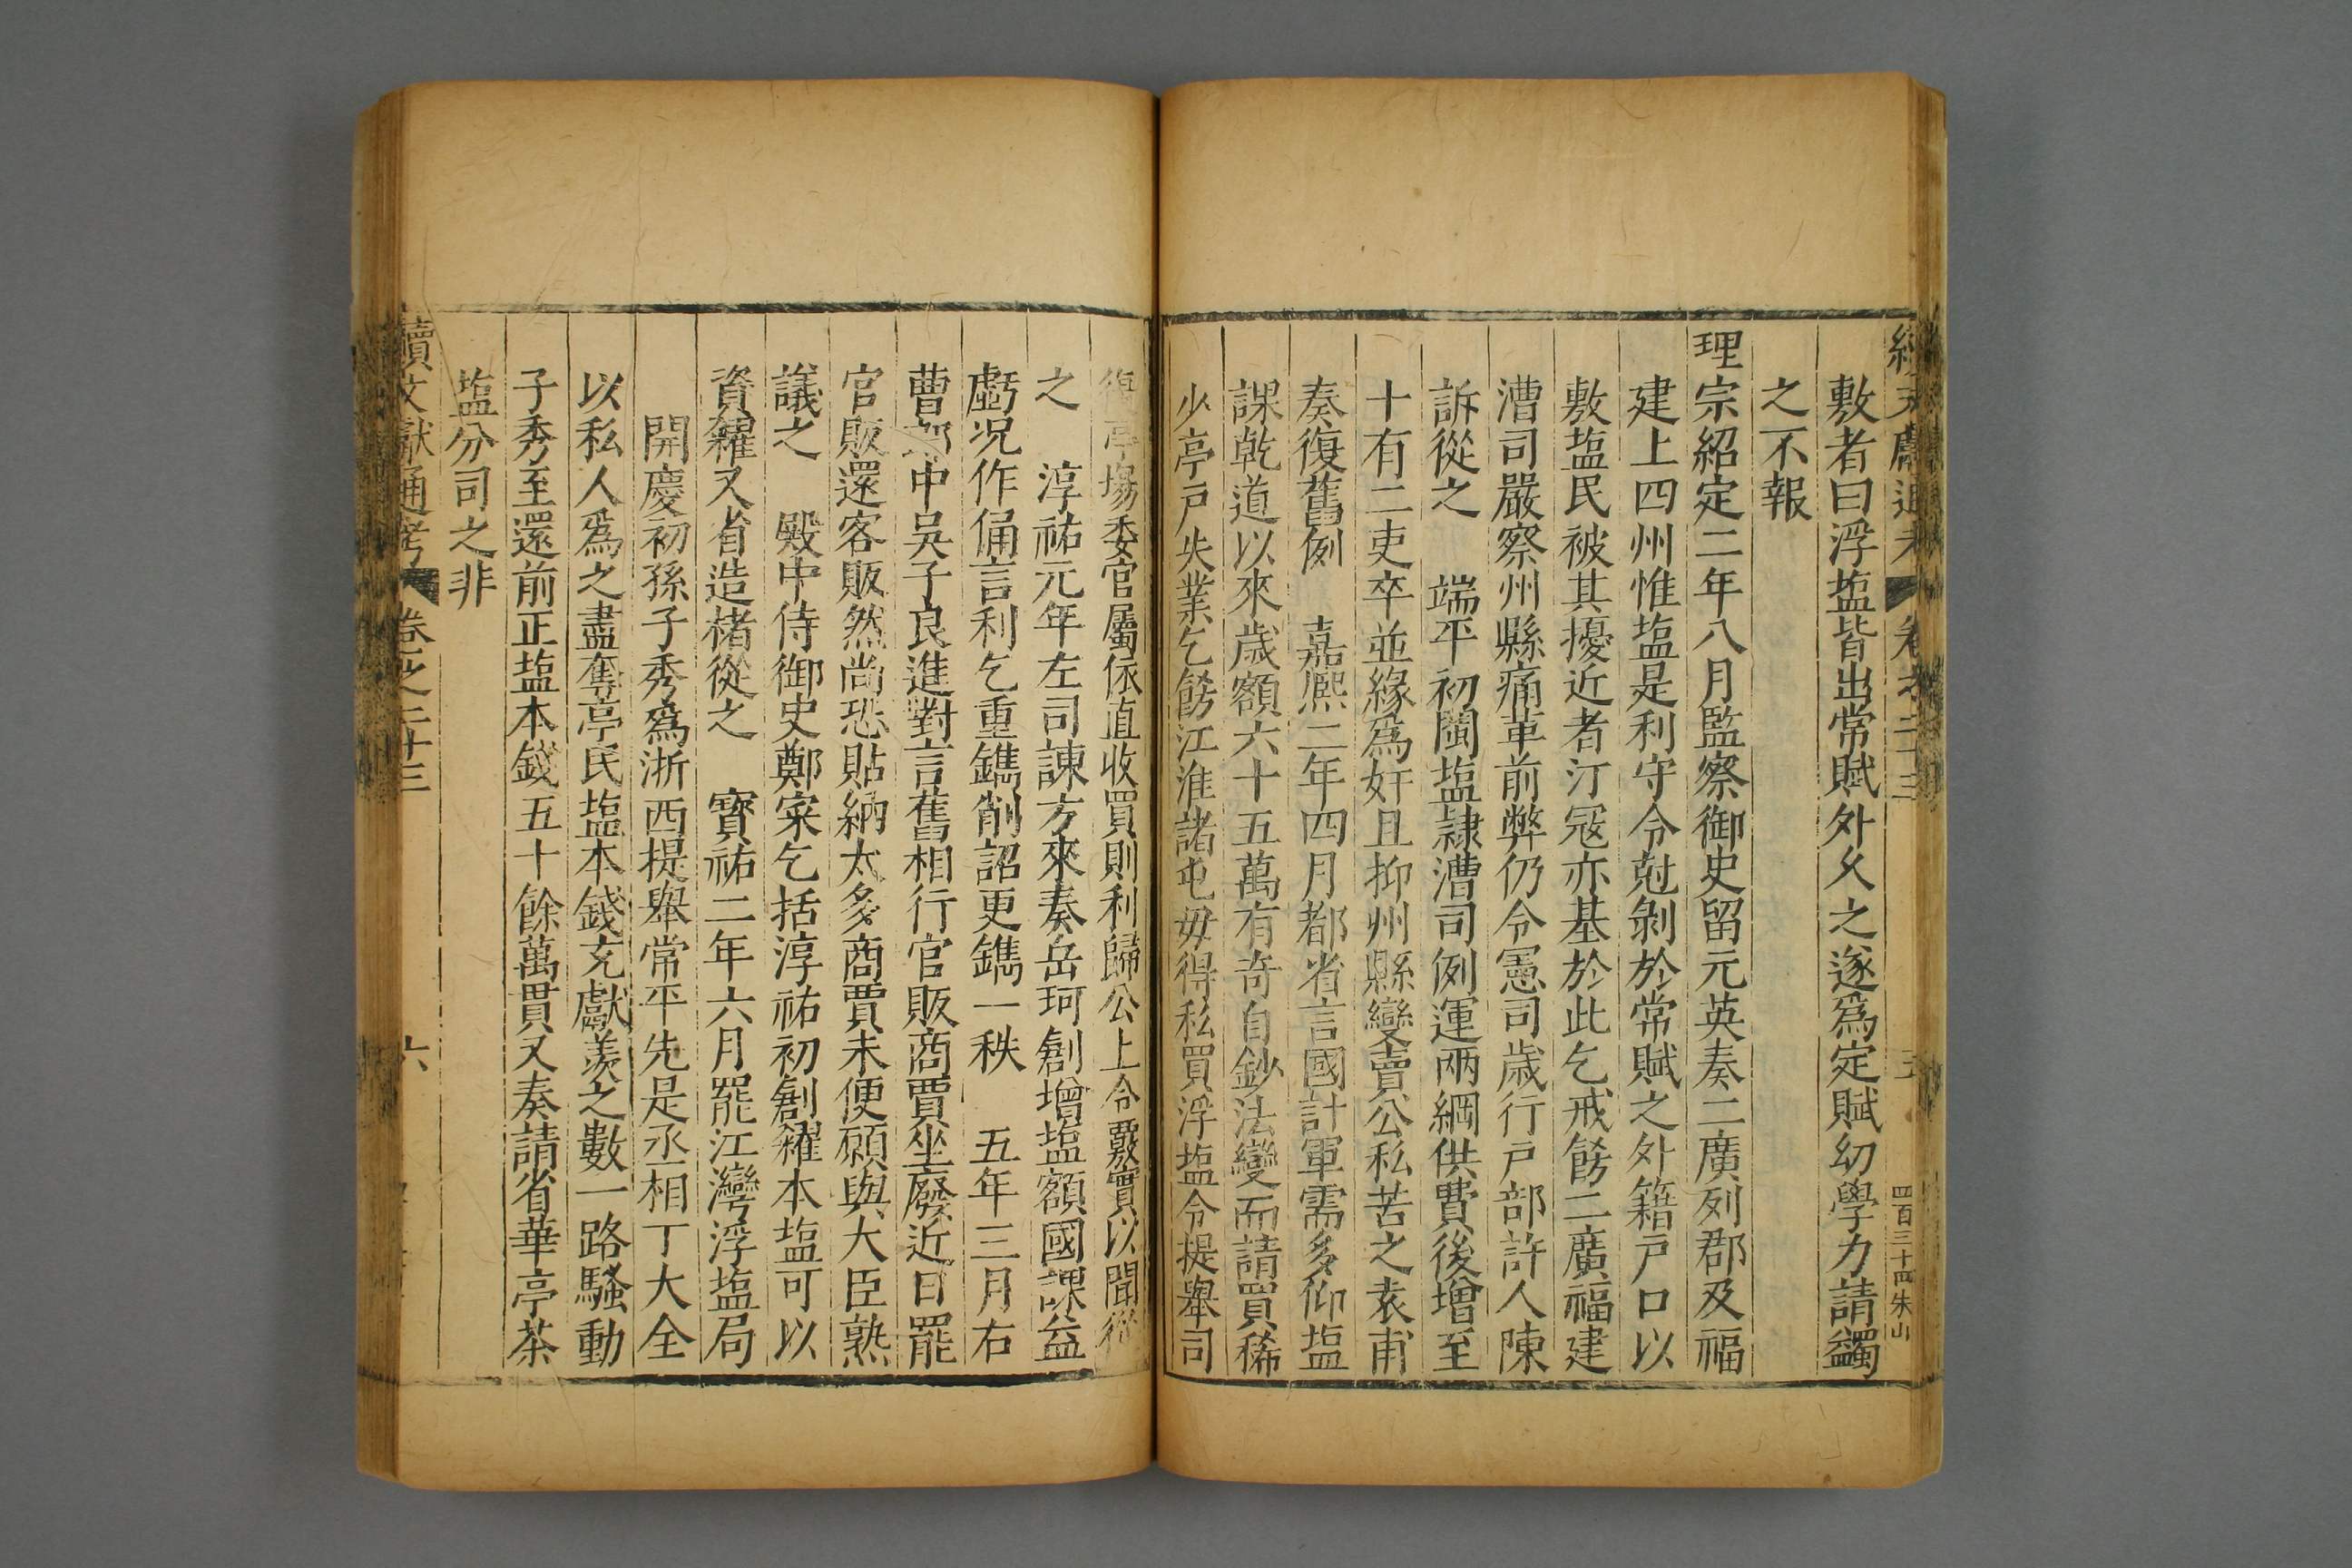 續文獻通考 卷之二十三 五 四百三十四 朱山
敷者曰浮塩皆出常賦外久之遂爲定賦幻學力請蠲
之不報
理宗紹定二年八月監察御史留元英奏二廣列郡及福
建上四州惟塩是利守令尅剝於常賦之外籍戸口以
敷塩民被其擾近者汀冦亦基於此乞戒餝二廣福建
漕司嚴察州縣痛革前弊仍令憲司歲行戸部許人陳
訴從之 端平初閩塩隷漕司例運兩綱供費後增至
十有二吏卒並緣爲奸且抑州縣變賣公私苦之袁甫
奏復舊例 嘉熈二年四月都省言國計軍需多仰塩
課乾道以來歲額六十五萬有奇自鈔法變而請買稀
少亭戸失業乞餝江淮諸屯毋得私買浮塩令提舉司
復亭塲委官屬依直收買則利歸公上令覈實以聞從
之 淳祐元年左司諫方來奏岳珂創增塩額國課益
虧况作俑言利乞重鐫削詔更鐫一秩 五年三月右
曹郎中吳子良進對言舊相行官販商賈坐廢近日罷
官販還客販然尚恐貼納太多商賈未便願與大臣熟
議之 殿中侍御史鄭寀乞括淳祐初創糴本塩可以
資糴又省造楮從之 寳祐二年六月罷江灣浮塩局
開慶初孫子秀爲浙西提舉常平先是丞相丁大全
以私人爲之盡奪亭民塩本錢充獻羨之數一路騷動
子秀至還前正塩本錢五十餘萬貫又奏請省華亭茶
塩分司之非
續文獻通考 卷之二十三 六